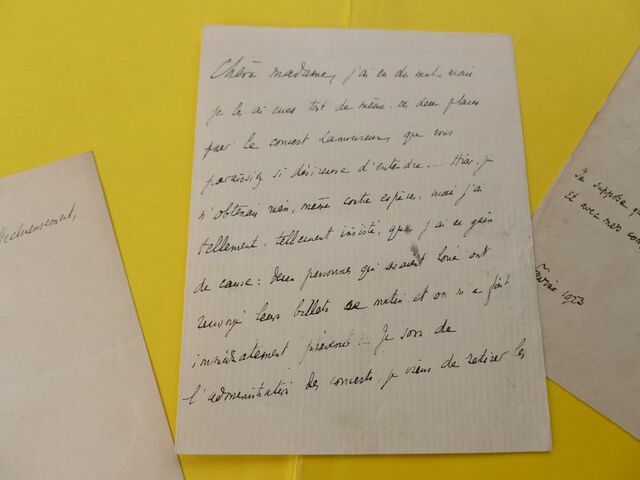 Chère madame, j'ai eu du mal, mais
je les ai eues tout de même, ces deux places
pour le concert Lamoureux, que vous
paraissiez si désireuse d'entendre... Hier, je
n'obtenais rien, même contre espèces, mais j'ai
tellement, tellement insisté, que j'ai eu gain
de cause : deux personnes qui avaient loué ont
renvoyé leurs billets ce matin et on m'a fait
immédiatement prévenir... Je sors de
l'administration des concerts, je viens de retirer les
affectueusement,
Je suppose
Et avec mes
1923